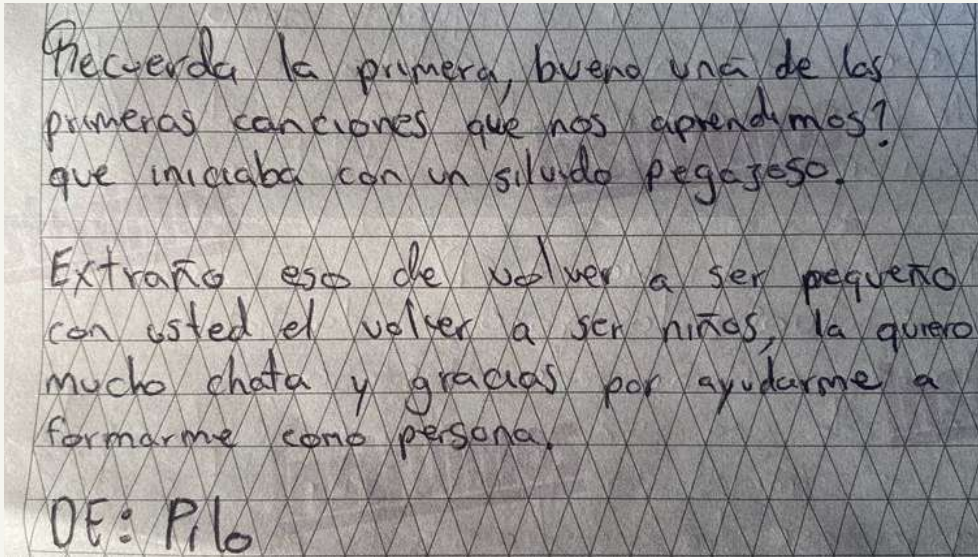 Recuerda la primera, bueno una de las
primeras canciones que nos aprendimos?
que iniciaba con un silvido pegajoso.
Extraño eso de volver a ser pequeño
con usted el volver a ser niños, la quiero
mucho chata y gracias por ayudarme a
formarme como persona.
DE: Pilo